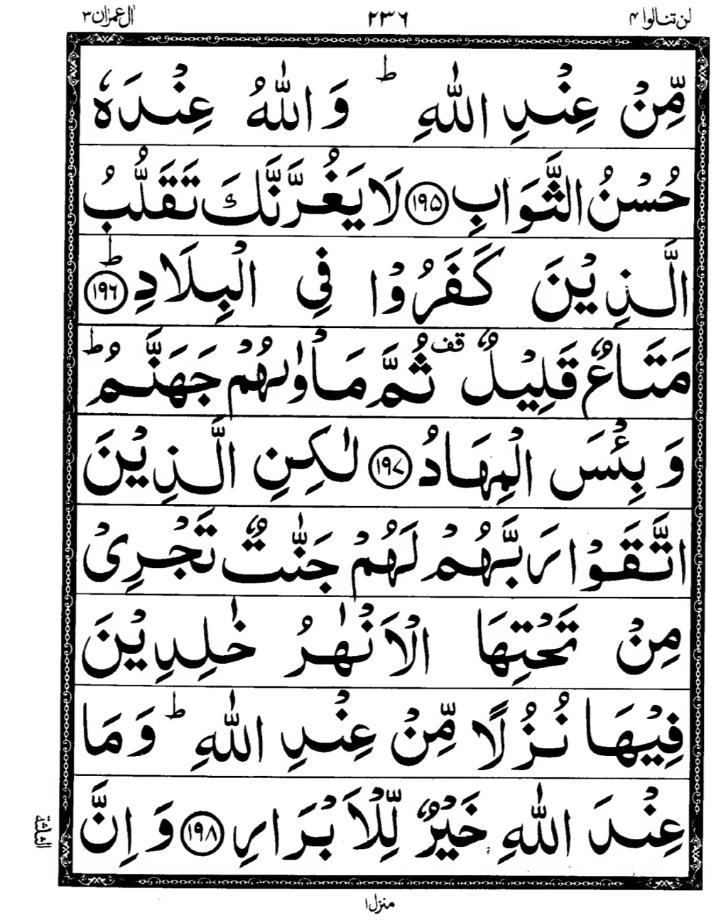 لن تنالوا ۴ ۲۳۶ اٰل عمرٰن ۳
مِّنْ عِنْدِ اللّٰهِ ؕ وَاللّٰهُ عِنْدَهٗ
حُسْنُ الثَّوَابِ ﴿۱۹۵﴾ لَا يَغُرَّنَّكَ تَقَلُّبُ
الَّذِيْنَ كَفَرُوْا فِي الْبِلَادِ ؕ﴿۱۹۶﴾
مَتَاعٌ قَلِيْلٌ قف ثُمَّ مَاْوٰىهُمْ جَهَنَّمُ ؕ
وَ بِئْسَ الْمِهَادُ ﴿۱۹۷﴾ لٰكِنِ الَّذِيْنَ
اتَّقَوْا رَبَّهُمْ لَهُمْ جَنّٰتٌ تَجْرِيْ
مِنْ تَحْتِهَا الْاَنْهٰرُ خٰلِدِيْنَ
فِيْهَا نُزُلًا مِّنْ عِنْدِ اللّٰهِ ؕ وَمَا
عِنْدَ اللّٰهِ خَيْرٌ لِّلْاَبْرَارِ ﴿۱۹۸﴾ وَ اِنَّ
الثلثة
منزل ۱